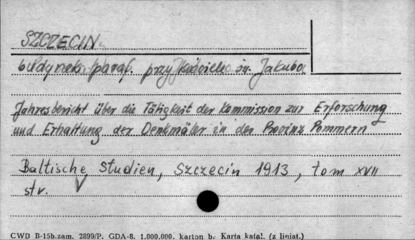 SZCZECIN
budynek paraf. przy kościele św. Jakuba
Jahresbericht über die Tätigkeit der Kommission zur Erforschung
und Erhaltung der Denkmäler in der Provinz Pommern
Baltische Studien, Szczecin 1913, tom XVII
str.
CWD B-15b.zam. 2899/P. GDA-8. 1.000.000. karton b. Karta katal. (z liniat.)